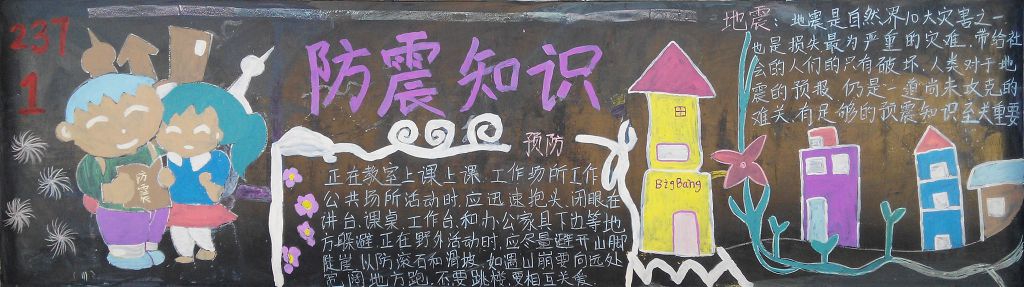 237
1
防震知识
预防
正在教室上课上课、工作场所工作、
公共场所活动时,应迅速抱头、闭眼在
讲台、课桌、工作台、和办公家具下边等地
方躲避。正在野外活动时,应尽量避开山脚
陡崖,以防滚石和滑坡,如遇山崩要向远处
宽阔地方跑,不要跳楼,要相互关爱.
防震
BigBang
地震:地震是自然界10大灾害之一,
也是损失最为严重的灾难,带给社
会的人们的只有破坏,人类对于地
震的预报,仍是一道尚未攻克的
难关,有足够的预震知识至关重要